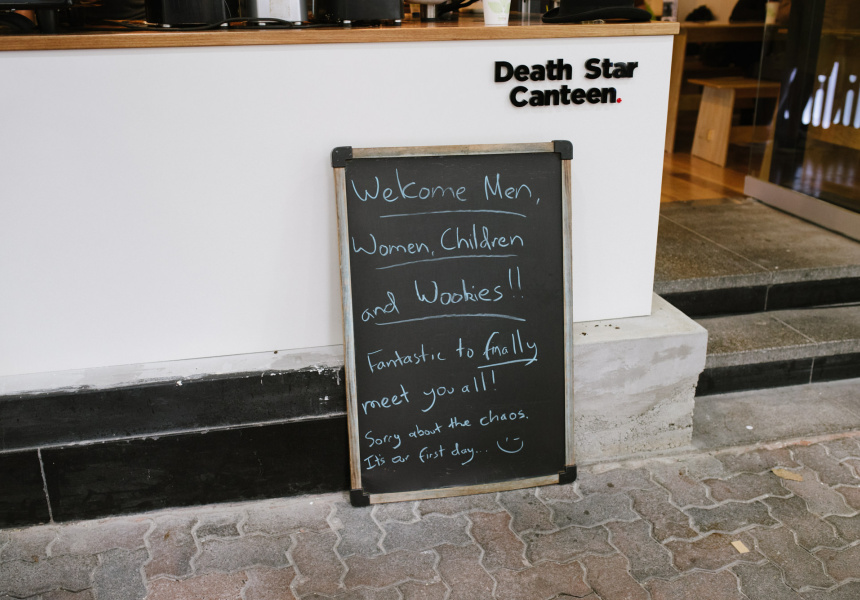 Death Star
Canteen.
Welcome Men,
Women, Children
and Wookies!!
Fantastic to finally
meet you all!
Sorry about the chaos.
It's our first day...